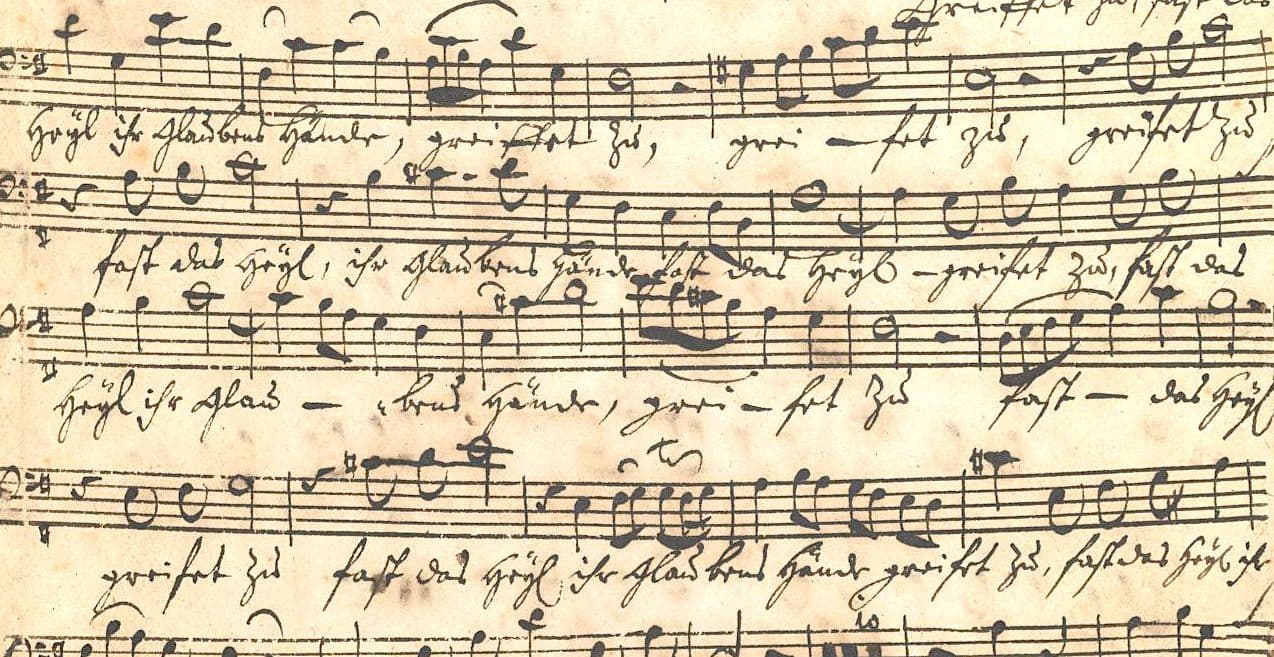 greiffet zu, fast das
Heÿl ihr Glaubens Hände, greiffet zu, grei - fet zu, greifet zu
fast das Heÿl, ihr Glaubens Hände fast das Heÿl - greifet zu, fast das
Heÿl ihr Glau - - bens Hände, grei - fet zu fast - das Heÿl
greifet zu fast das Heÿl ihr Glaubens Hände greifet zu, fast das Heÿl ihr